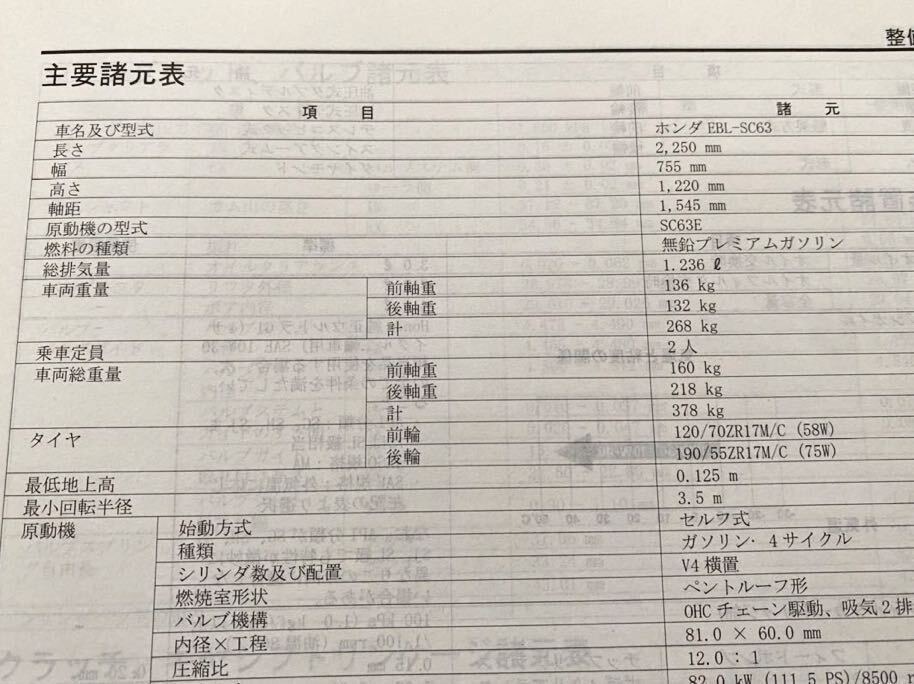 整備
主要諸元表
項 目 諸 元
車名及び型式 ホンダ EBL-SC63
長さ 2,250 mm
幅 755 mm
高さ 1,220 mm
軸距 1,545 mm
原動機の型式 SC63E
燃料の種類 無鉛プレミアムガソリン
総排気量 1.236 ℓ
車両重量 前軸重 136 kg
後軸重 132 kg
計 268 kg
乗車定員 2 人
車両総重量 前軸重 160 kg
後軸重 218 kg
計 378 kg
タイヤ 前輪 120/70ZR17M/C (58W)
後輪 190/55ZR17M/C (75W)
最低地上高 0.125 m
最小回転半径 3.5 m
原動機 始動方式 セルフ式
種類 ガソリン・4サイクル
シリンダ数及び配置 V4横置
燃焼室形状 ペントルーフ形
バルブ機構 OHC チェーン駆動、吸気2排
内径×工程 81.0 × 60.0 mm
圧縮比 12.0 : 1
82.0 kW (111.5 PS)/8500 r